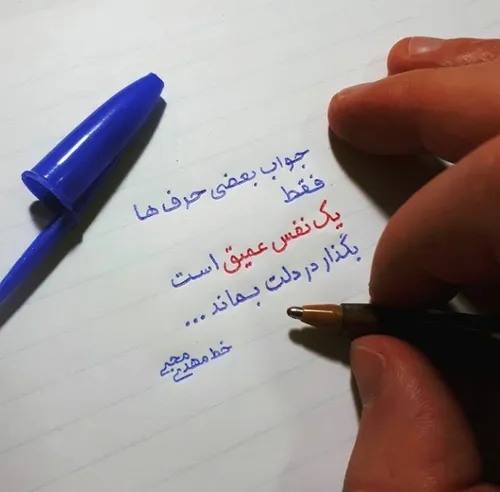 جواب بعضی حرف ها
فقط
یک نفس عمیق است
بگذار در دلت بماند ...
خط مهدی محبی